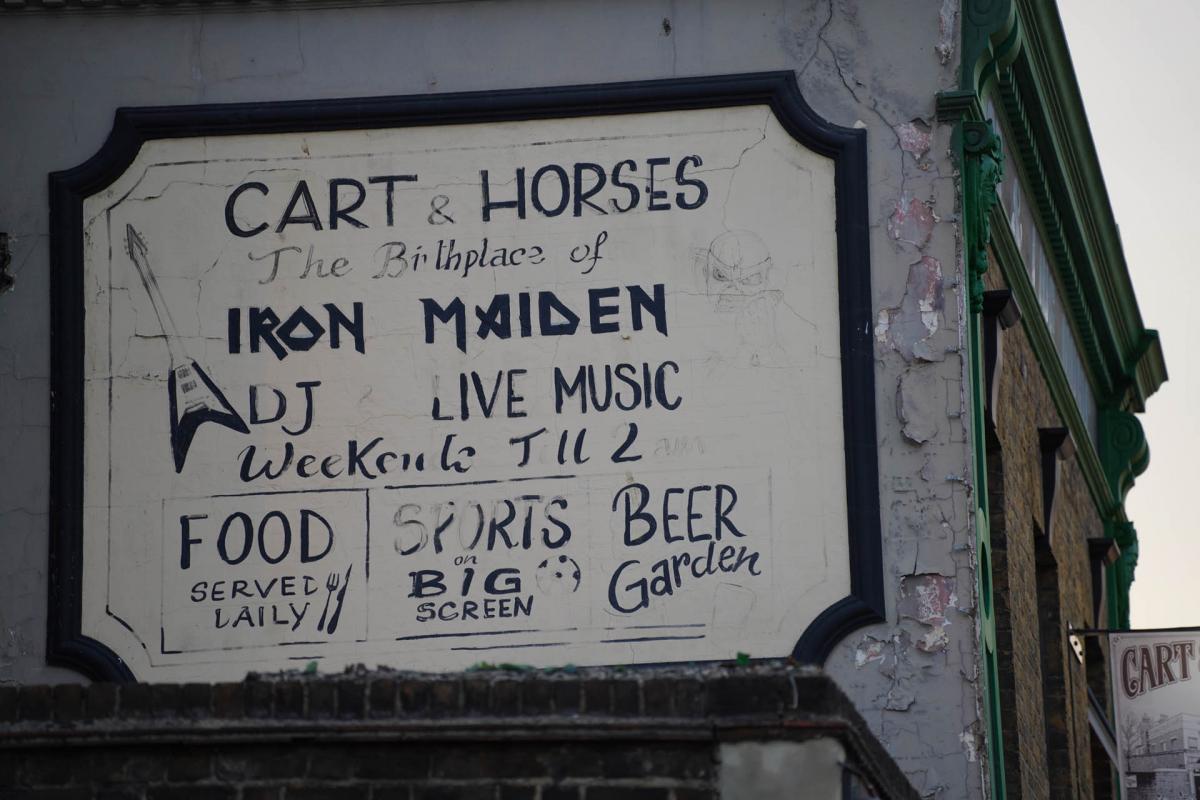 CART & HORSES
The Birthplace of
IRON MAIDEN
DJ LIVE MUSIC
Weekends Till 2 am
FOOD
SERVED
DAILY
SPORTS
on
BIG
SCREEN
BEER
Garden
CART